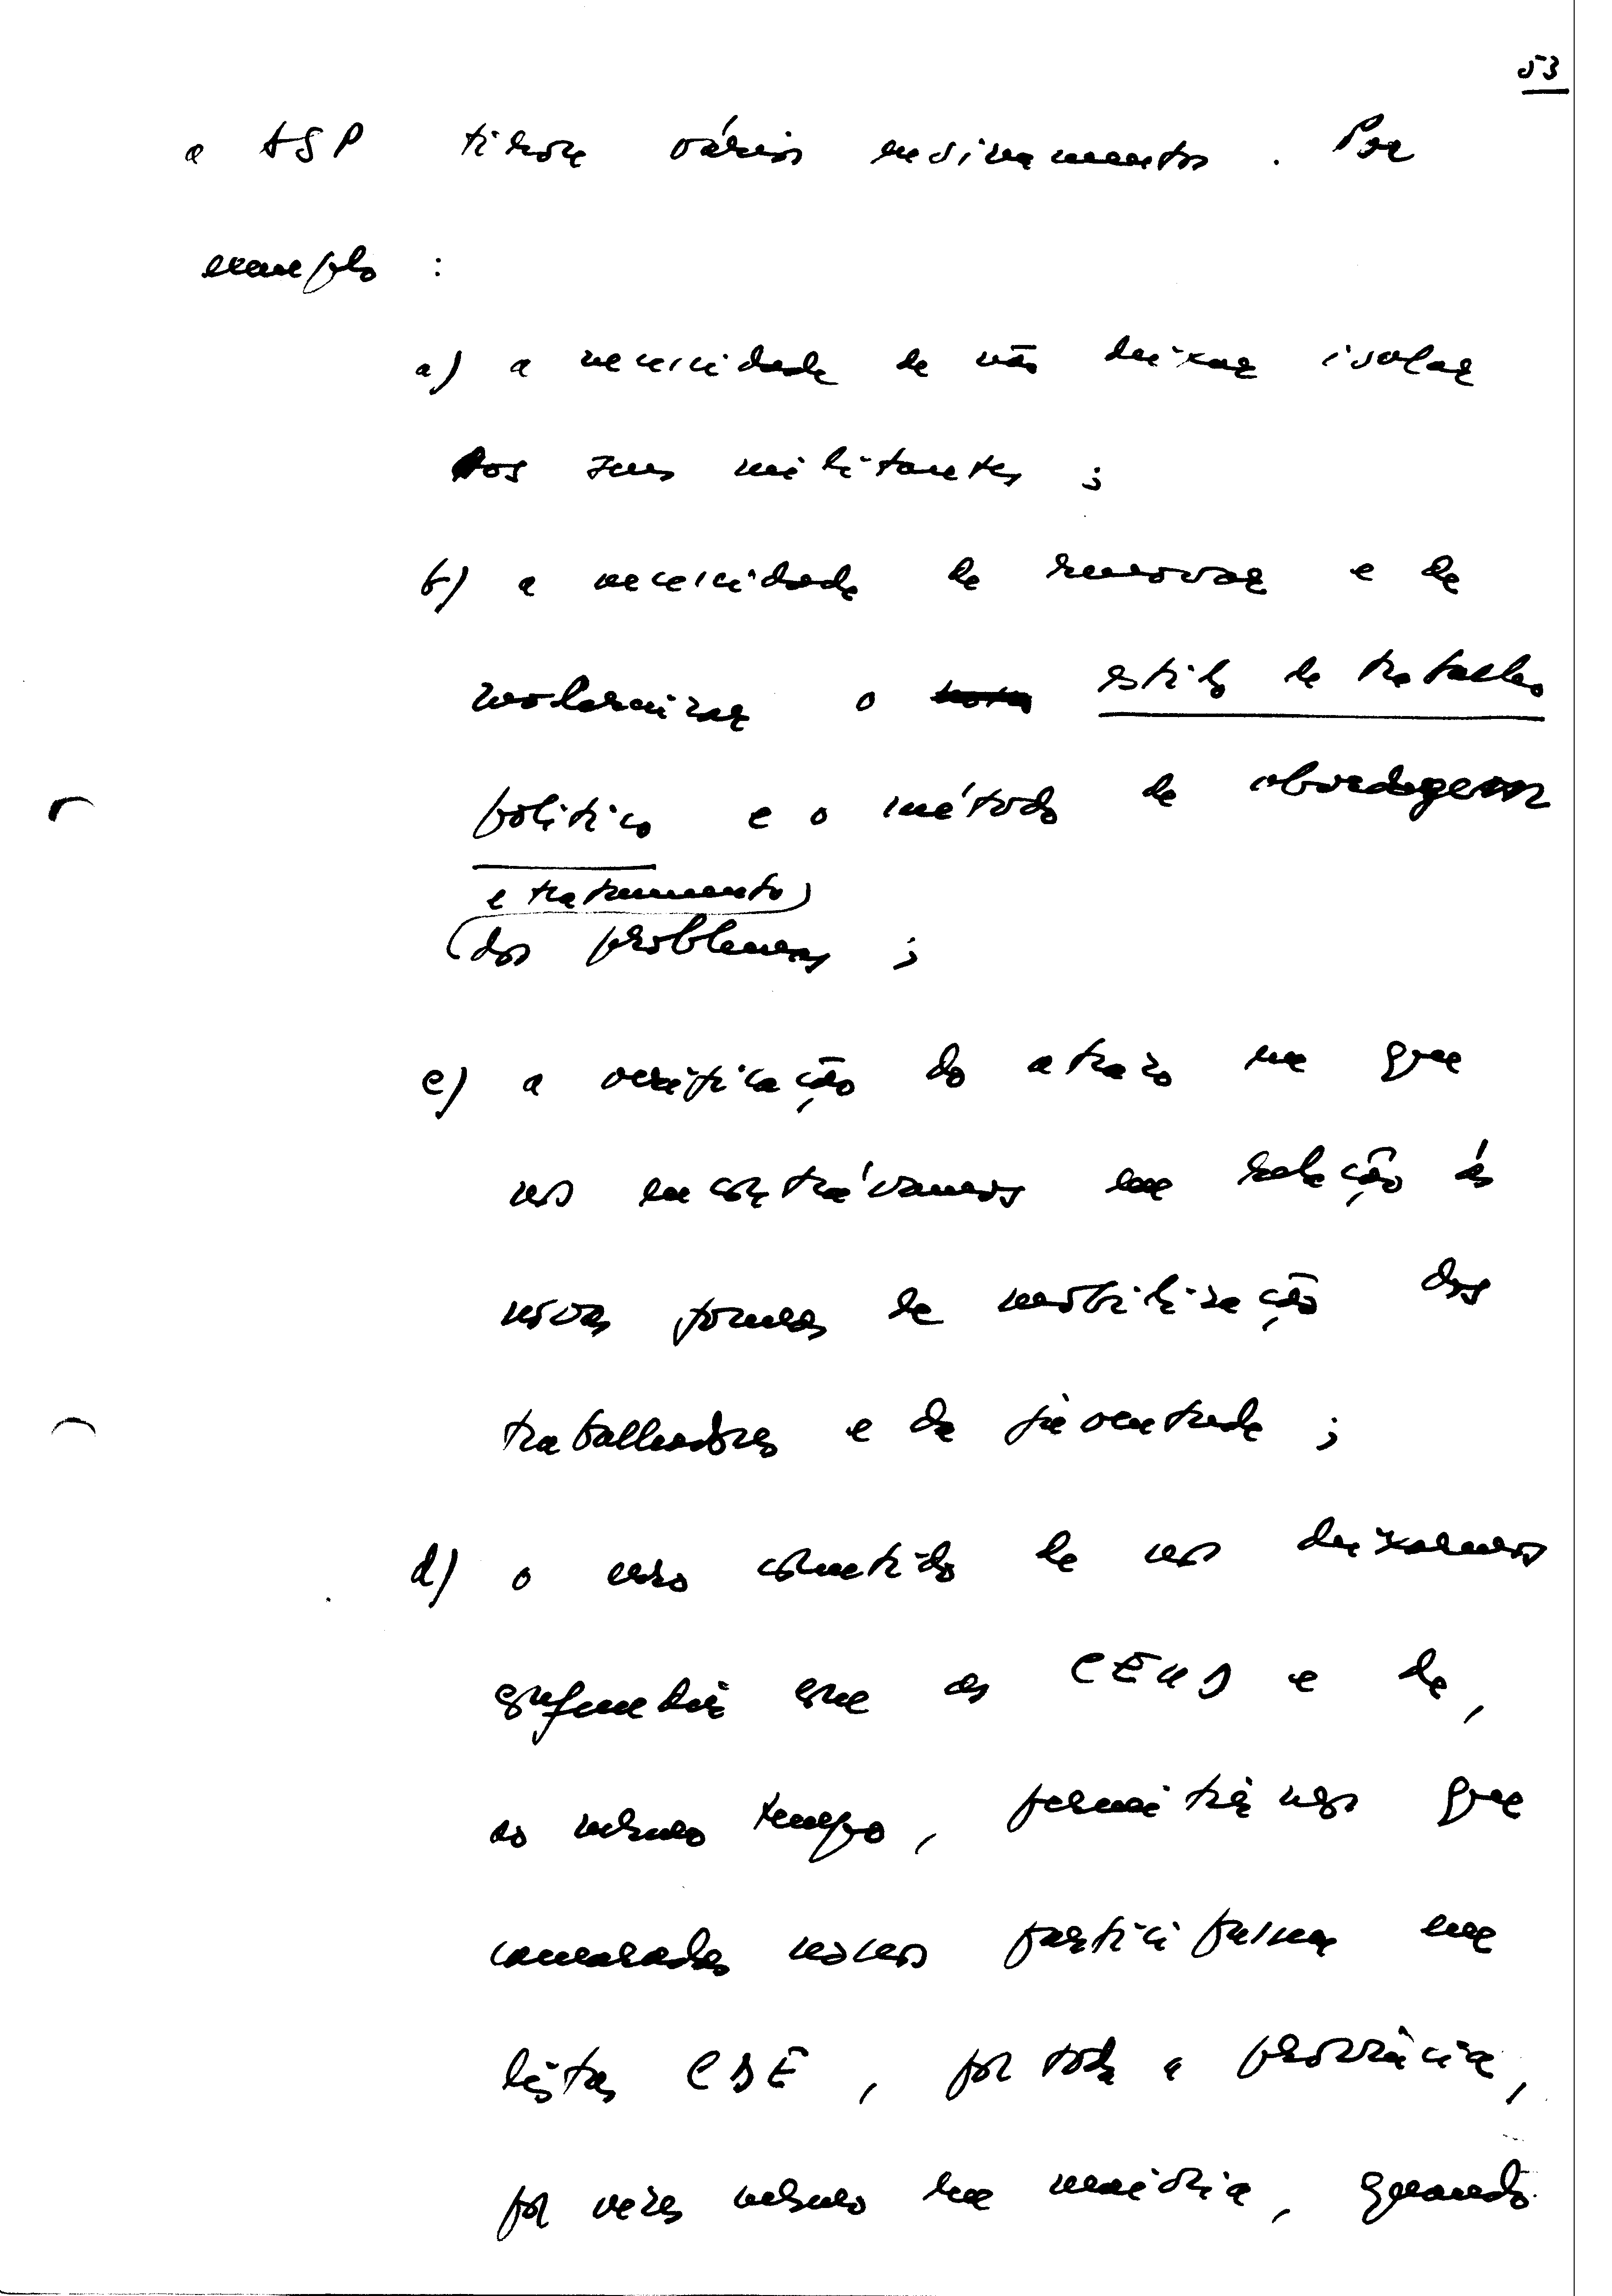 53
a ASP tirou vários ensinamentos. Por
exemplo :
a) a necessidade de não deixar isolar
os seus militantes ;
b) a necessidade de renovar e de
modernizar o estilo de trabalho
político e o método de abordagem
e tratamento
dos problemas ;
c) a verificação do atrazo em que
nos encontrávamos em relação ás
novas formas de mobilização dos
trabalhadores e da juventude ;
d) o erro cometido de nos deixarmos
com as CEUD e de,
ao mesmo tempo, permitirmos que
camaradas nossos participassem em
listas CDE, por toda a província,
por vezes mesmo em maioria, quando